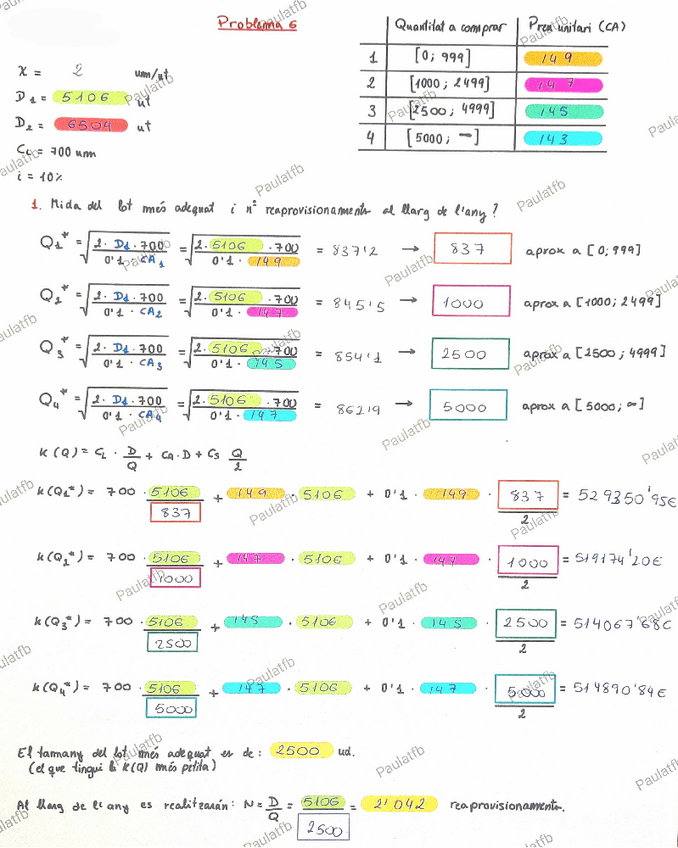 Problema 6
Quantitat a comprar Preu unitari (CA)
1 [0; 999] 149
2 [1000; 2499] 147
3 [2500; 4999] 145
4 [5000; ∞] 143
x = 2 um/ut
D1 = 5106 ut
D2 = 6504 ut
CL = 700 um
i = 10%
1. Mida del lot més adequat i nº reaprovisionaments al llarg de l'any?
Q1* = √(2·D1·700 / 0'1·CA1) = √(2·5106·700 / 0'1·149) = 837'2 → 837 aprox a [0; 999]
Q2* = √(2·D1·700 / 0'1·CA2) = √(2·5106·700 / 0'1·147) = 845'5 → 1000 aprox a [1000; 2499]
Q3* = √(2·D1·700 / 0'1·CA3) = √(2·5106·700 / 0'1·145) = 854'1 → 2500 aprox a [2500; 4999]
Q4* = √(2·D1·700 / 0'1·CA4) = √(2·5106·700 / 0'1·147) = 862'9 → 5000 aprox a [5000; ∞]
K(Q) = CL · D/Q + CA·D + CS Q/2
K(Q1*) = 700 · 5106/837 + 149 · 5106 + 0'1 · 149 · 837/2 = 529350'95€
K(Q2*) = 700 · 5106/1000 + 147 · 5106 + 0'1 · 147 · 1000/2 = 519174'20€
K(Q3*) = 700 · 5106/2500 + 145 · 5106 + 0'1 · 145 · 2500/2 = 514067'68€
K(Q4*) = 700 · 5106/5000 + 147 · 5106 + 0'1 · 147 · 5000/2 = 514890'84€
El tamany del lot més adequat es de: 2500 ud.
(el que tingui la K(Q) més petita)
Al llarg de l'any es realitzaràn: N = D/Q = 5106/2500 = 2'042 reaprovisionaments.
Paulatfb